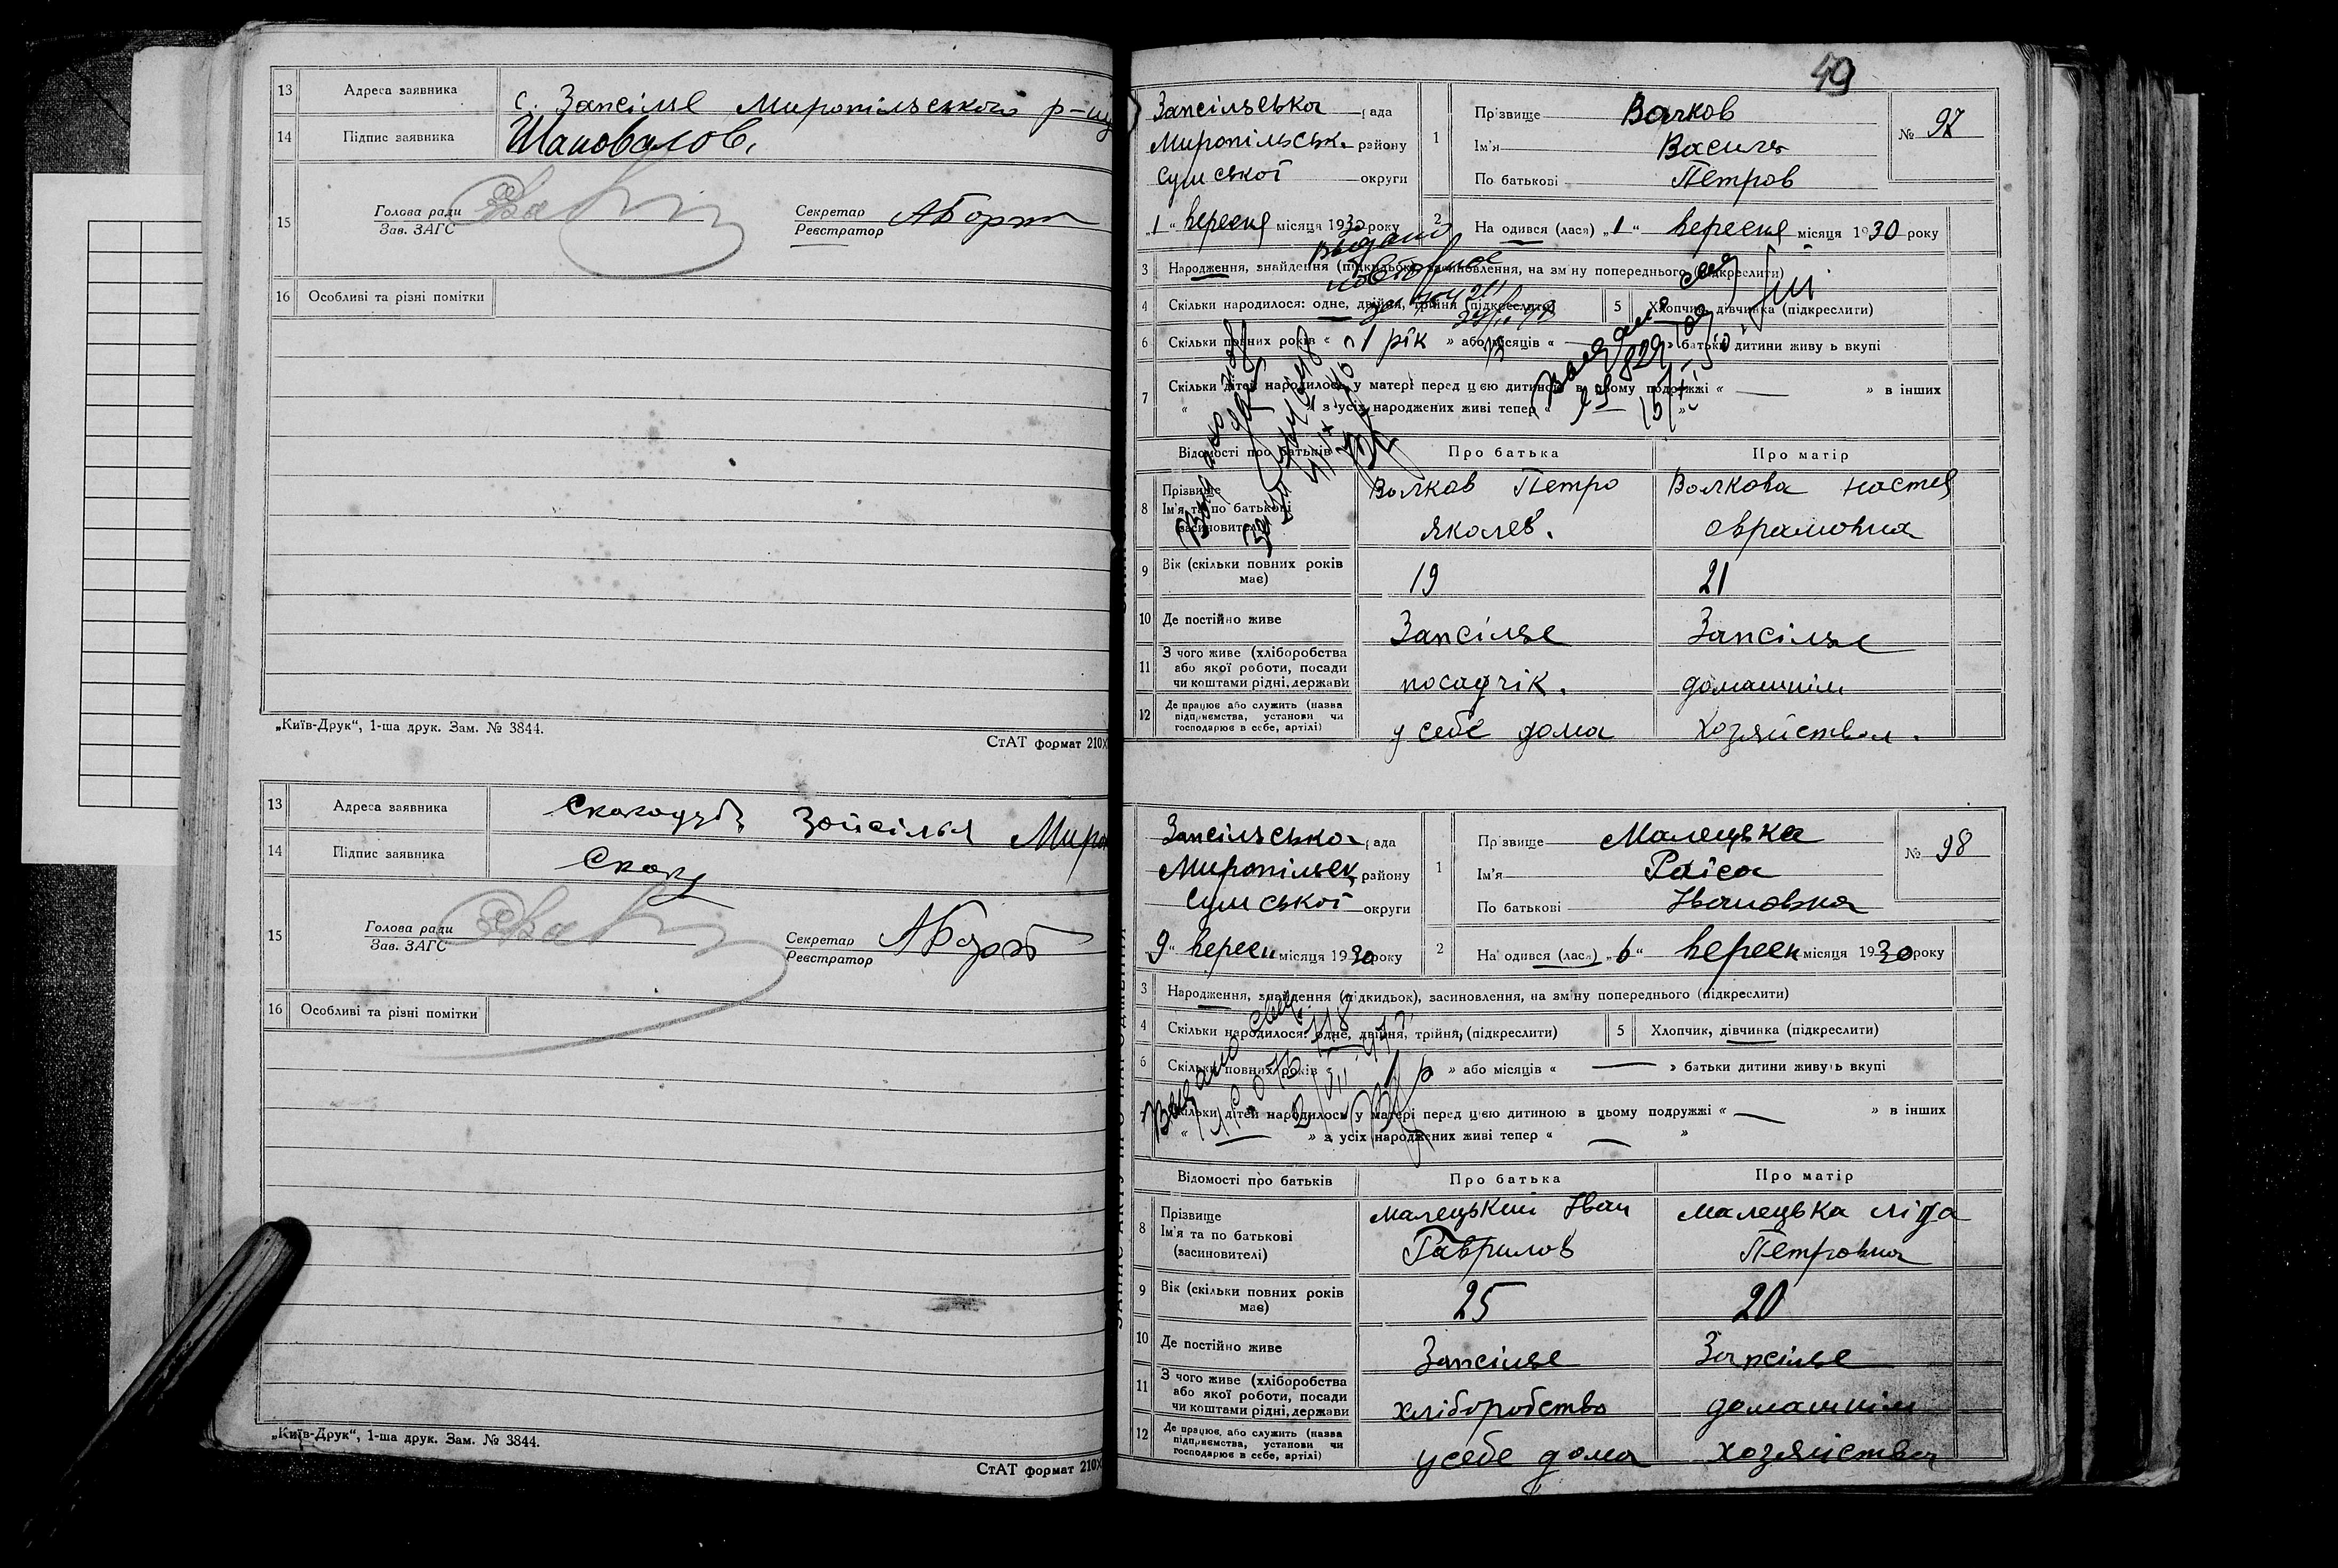 13 Адреса заявника с. Запсілле Миропільського р-ну
14 Підпис заявника Шаповалов.
15 Голова ради
Зав. ЗАГС
Секретар
Реєстратор
16 Особливі та різні помітки
„Київ-Друк“, 1-ша друк. Зам. № 3844.
СтАТ формат 210Х
13 Адреса заявника Запсілья Миро
14 Підпис заявника
15 Голова ради
Зав. ЗАГС
Секретар
Реєстратор
16 Особливі та різні помітки
„Київ-Друк“, 1-ша друк. Зам. № 3844.
СтАТ формат 210Х
49
Запсільська рада
Миропільськ. району
Сумської округи
„1“ вересня місяця 1930 року
1 Прізвище Волков
Ім'я Василь
По батькові Петров
№ 97
2 Народився (лася) „1“ вересня місяця 1930 року
3 Народження, знайдення (підкидьок), засиновлення, на зміну попереднього (підкреслити)
4 Скільки народилося: одне, двійня, трійня (підкреслити)
5 Хлопчик, дівчинка (підкреслити)
6 Скільки повних років « 1 рік » або місяців « » батьки дитини живуть вкупі
7 Скільки дітей народилось у матері перед цією дитиною в цьому подружжі « — » в інших
« » з усіх народжених живі тепер « — »
Відомості про батьків Про батька Про матір
8 Прізвище
Ім'я та по батькові
(засиновителі)
Волков Петро
Яколев.
Волкова Настя
Аврамовна
9 Вік (скільки повних років має) 19 21
10 Де постійно живе Запсілье Запсілье
11 З чого живе (хліборобства або якої роботи, посади чи коштами рідні, держави
посадчік. домашнім
12 Де працює або служить (назва підприємства, установи чи господарює в себе, артілі)
у себе дома хозяйством.
Запсільська рада
Миропільськ. району
Сумської округи
9“ вересн місяця 1930 року
1 Прізвище Малецька
Ім'я Раіса
По батькові Ивановна
№ 98
2 Народився (лася) „6“ вересн місяця 1930 року
3 Народження, знайдення (підкидьок), засиновлення, на зміну попереднього (підкреслити)
4 Скільки народилося: одне, двійня, трійня, (підкреслити)
5 Хлопчик, дівчинка (підкреслити)
6 Скільки повних років 1 р » або місяців « — » батьки дитини живуть вкупі
7 Скільки дітей народилось у матері перед цією дитиною в цьому подружжі « — » в інших
« — » з усіх народжених живі тепер « — »
Відомості про батьків Про батька Про матір
8 Прізвище
Ім'я та по батькові
(засиновителі)
Малецький Иван
Гаврилов
Малецька Ліда
Петровна
9 Вік (скільки повних років має) 25 20
10 Де постійно живе Запсілье Запсілье
11 З чого живе (хліборобства або якої роботи, посади чи коштами рідні, держави
хліборобство домашнім
12 Де працює, або служить (назва підприємства, установи чи господарює в себе, артілі)
у себе дома хозяйством